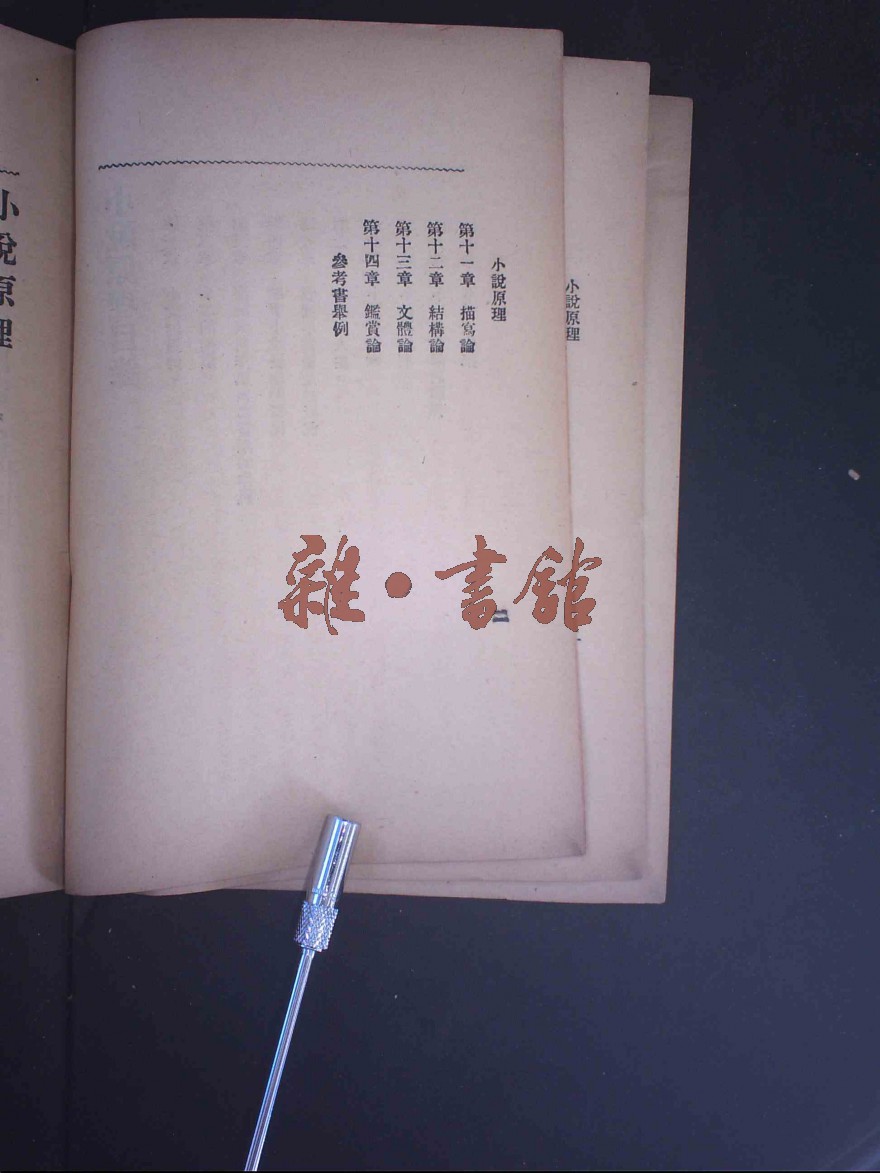 小說原理
小說原理
第十一章 描寫論
第十二章 結構論
第十三章 文體論
第十四章 鑑賞論
參考書舉例
二
小說原理
雜·書館